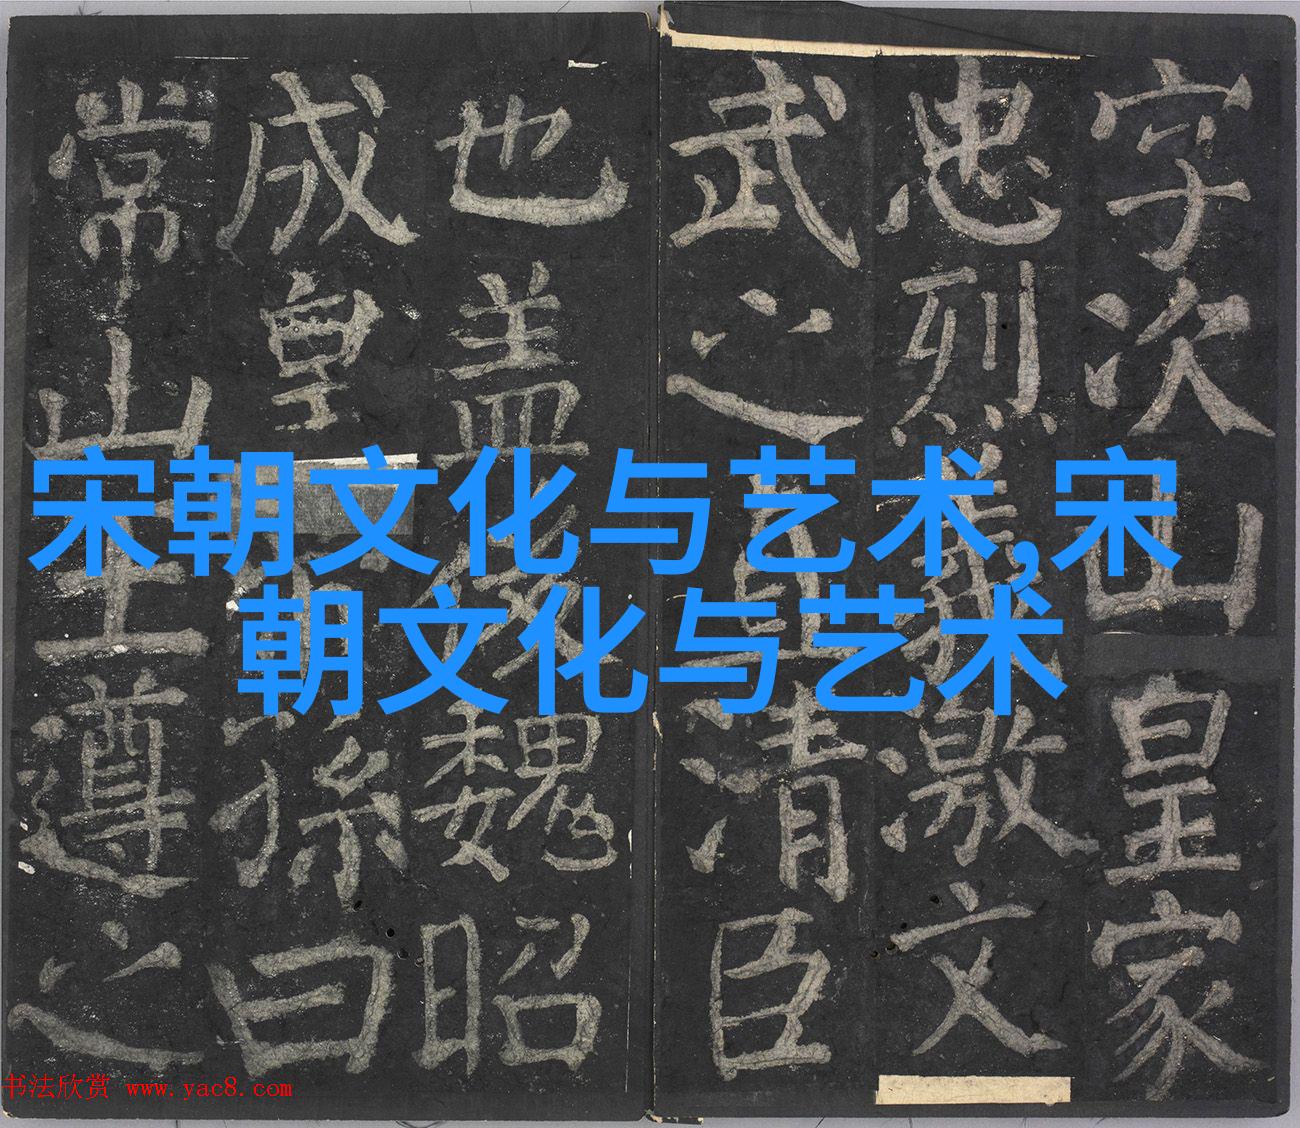 字次山皇家
忠烈義激文
武之直清臣
也盖後魏昭
成皇帝孫曰
常山王遵之
宋朝文化与艺术,宋
朝文化与艺术
书法欣赏 www.yac8.com